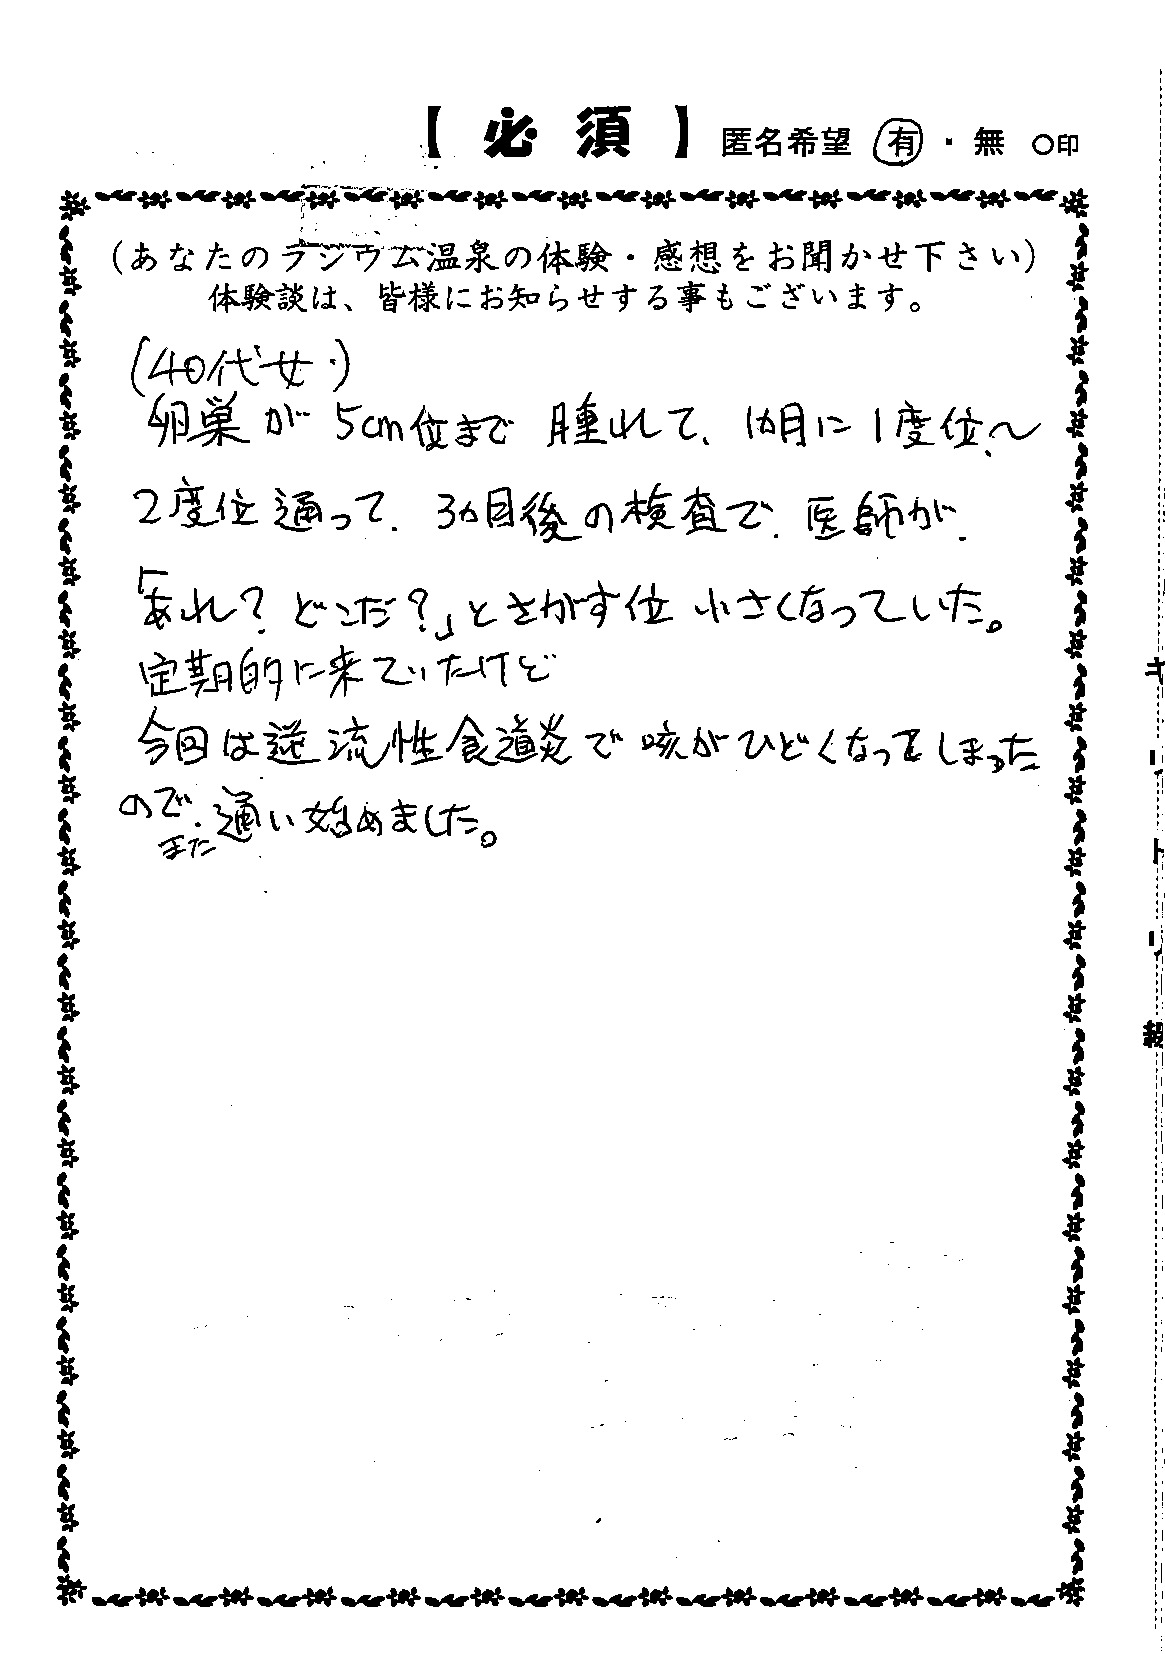 【 必 須 】 匿名希望 有 ・ 無 ○印
(あなたのラジウム温泉の体験・感想をお聞かせ下さい)
体験談は、皆様にお知らせする事もございます。
(40代女・)
卵巣が 5cm位まで 腫れて、1カ月に1度位、〜
2度位 通って、3ヵ月後の検査で、医師が、
「あれ? どこだ?」とさがす位 小さくなっていた。
定期的に来ていたけど
今回は逆流性食道炎で咳がひどくなってしまった
ので、また通い始めました。
キ
リ
ト
リ
線